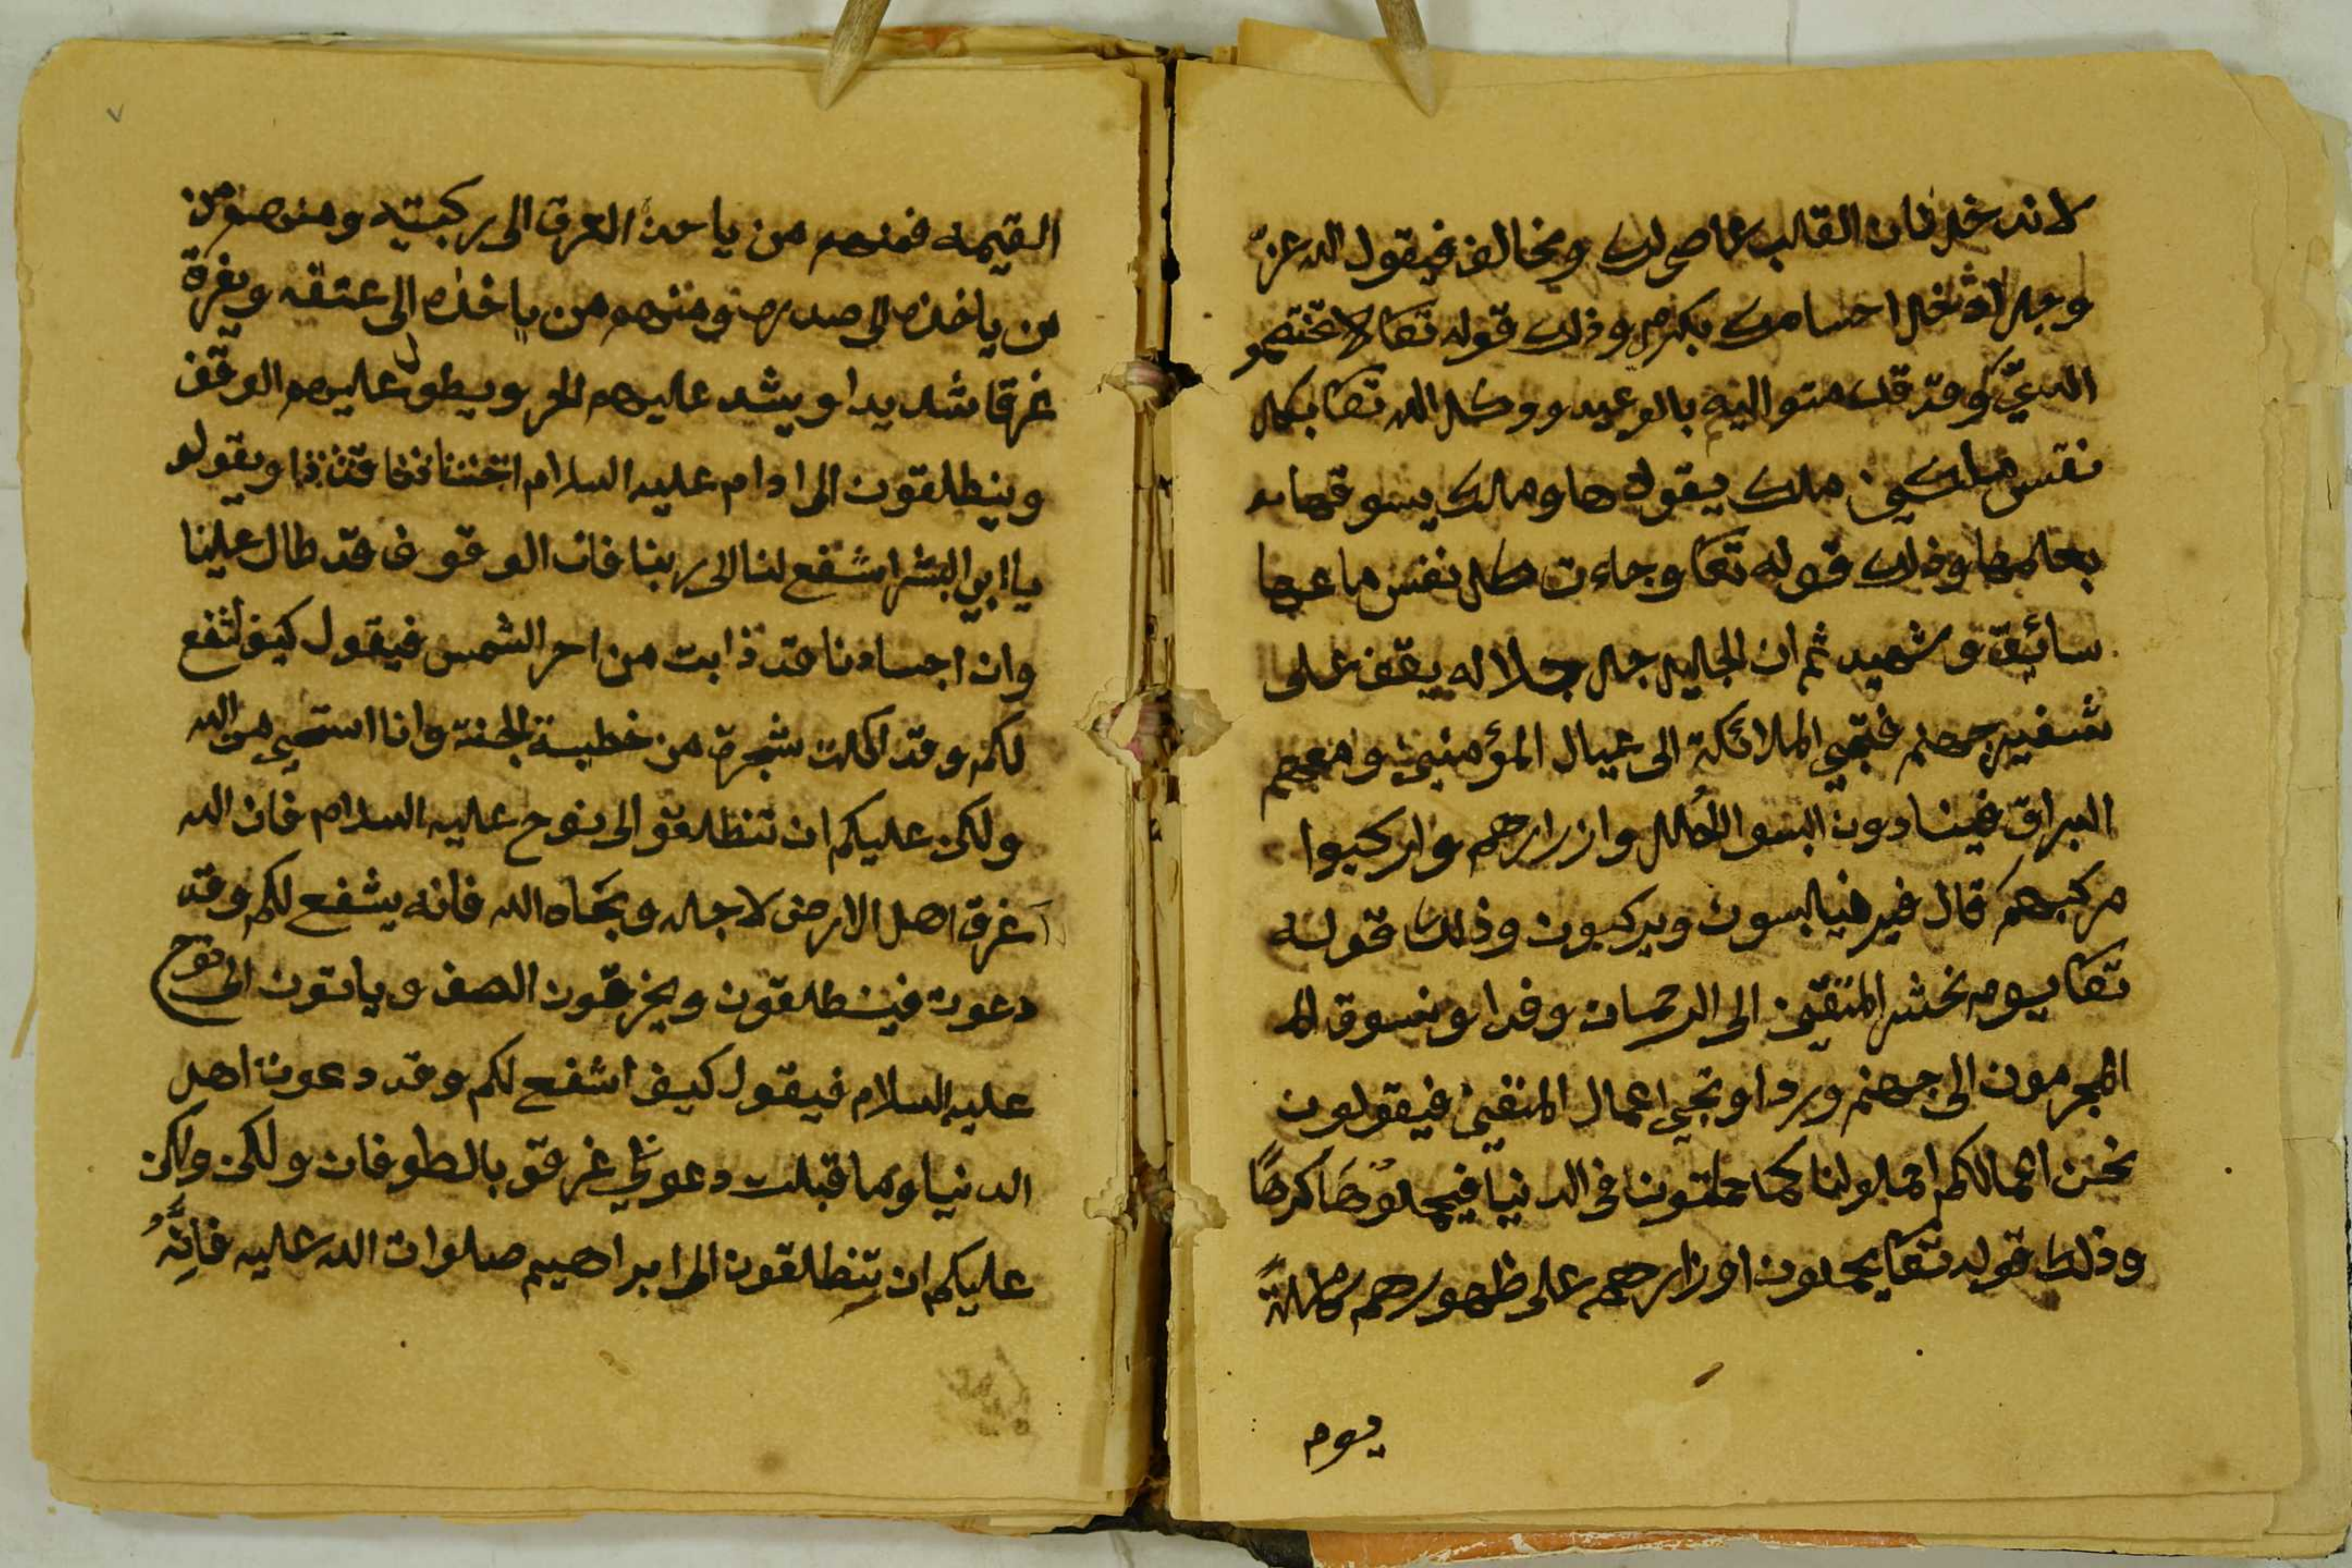 لاندخل فان القالب عاصى لك ومخالف فيقول الله عز
وجل ادخل احسامك بكرم وذلك قوله تعا لا تختصمو
الديّ وقد قدمتو اليم بالوعيد ووكل الله تعا بكل
نفس ملكين ملك يقودها وملك يسوقها
بعلمها وذلك قوله تعا وجاءت كل نفس معها
سائق وشهيد ثم ان الجليل جل جلاله يقف على
شفير جهنم فتجي الملائكة الى عيال المؤمنين ومعهم
البراق فينادون البسو الحلل وازرارهم واركبوا
مركبهم قال فيلبسون ويركبون وذلك قوله
تعا يوم نحشر المتقين الى الرحمان وفدا ونسوق الم
المجرمون الى جهنم وردا وتجي اعمال المتقين فيقولون
نحن اعمالكم احملولنا كما حملتونا في الدنيا فيحملوها كرها
وذلك قوله تعا يحملون اوزارهم على ظهورهم كاملة
يوم
القيمه فمنهم من ياخذ العرق الى ركبتيه ومنهم من
من ياخذه الى صدره ومنهم من ياخذه الى عنقه ويغرق
غرقا شديدا ويشد عليهم الحر ويطول عليهم الوقف
وينطلقون الى ادام عليه السلام ويقولو
يا ابي البشر اشفع لنا الى ربنا فان الوقوف قد طال علينا
وان اجسادنا قد ذابت من احر الشمس فيقول كيف اشفع
لكم وقد اكلت شجرة من خطيـة الجنة وانا استحي من الله
ولكن عليكم ان تنطلقو الى نوح عليه السلام فان الله
اغرق اهل الارض لاجله ونجاه الله فانه يشفع لكم وقد
دعوت فينطلقون ويخرقون الصف وياتون الى نوح
عليه السلام فيقول كيف اشفع لكم وقد دعوت اهل
الدنيا وما قبلت دعوتي غرقو بالطوفان ولكن ولكن
عليكم ان تنطلقون الى ابراهيم صلوات الله عليه فانّه